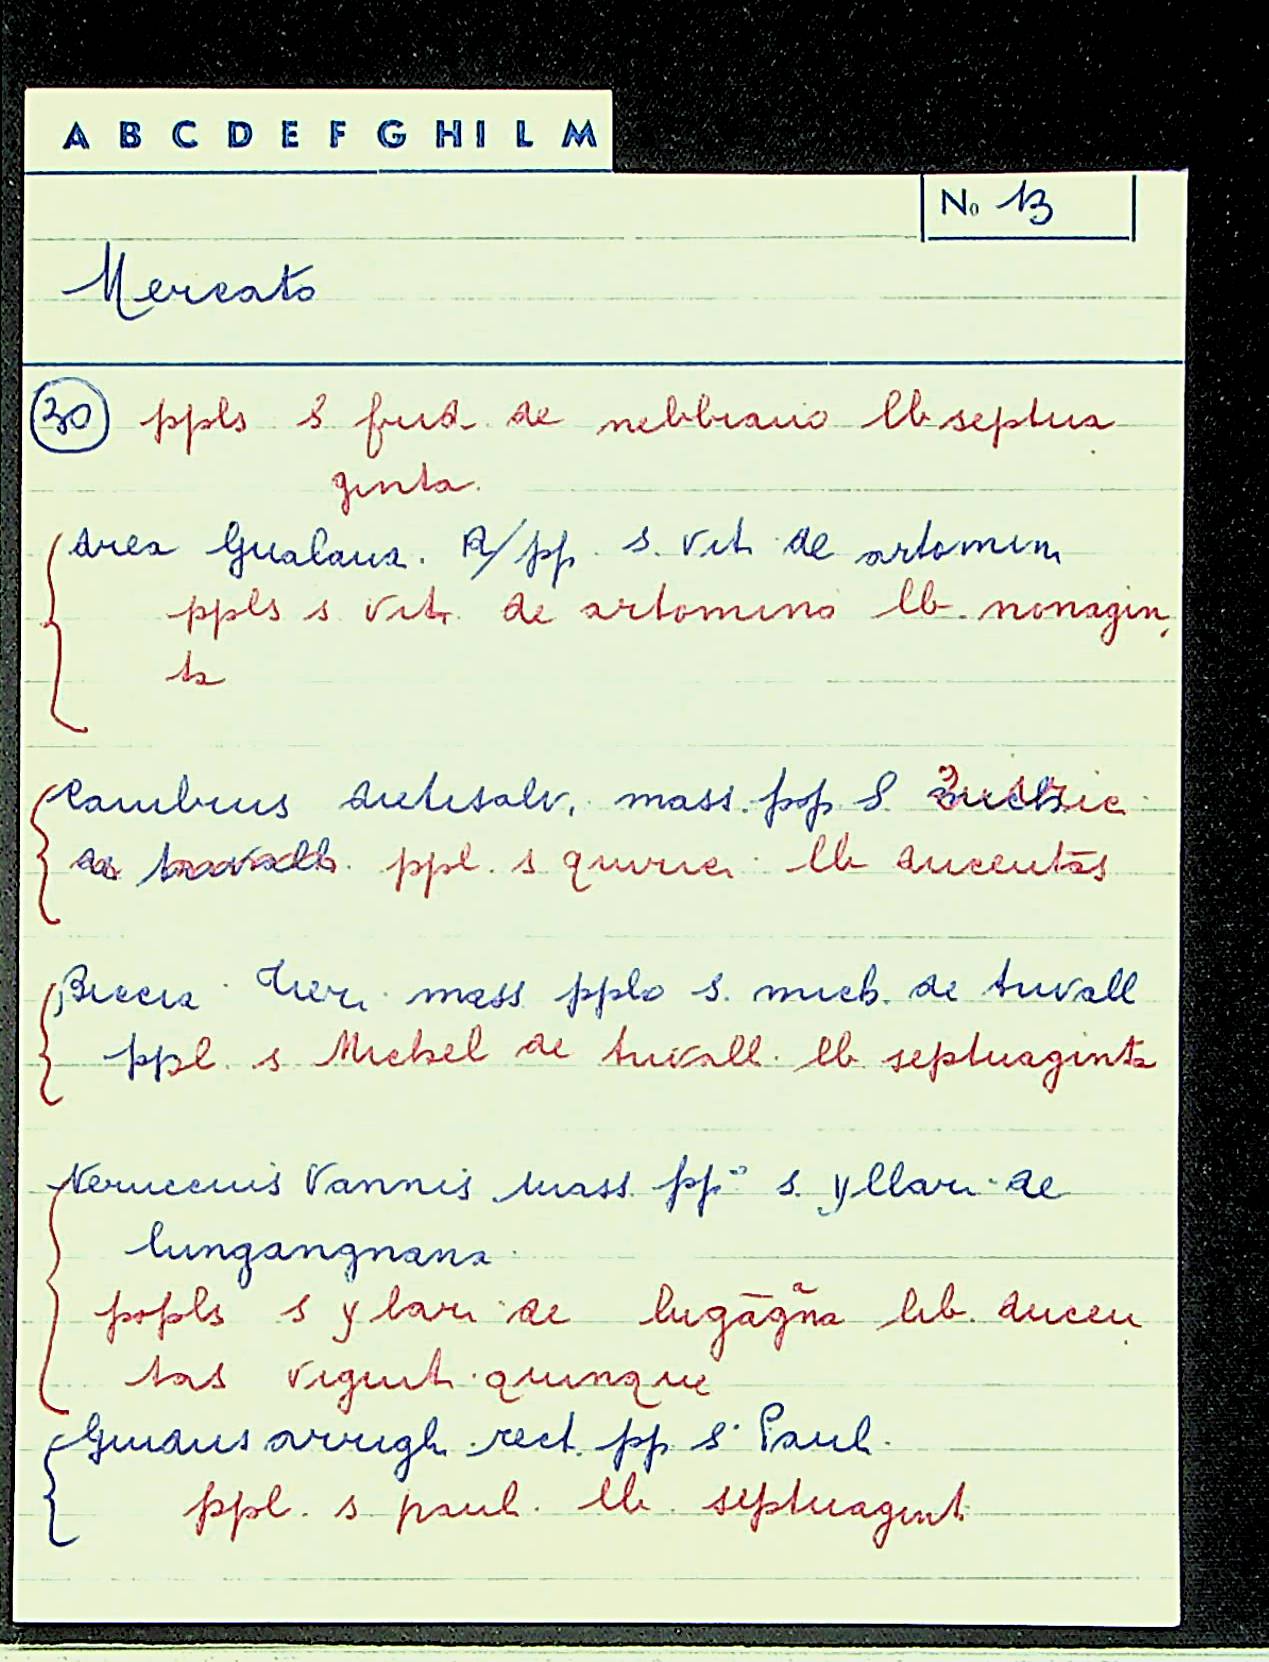 A B C D E F G H I L M
No 13
Mercato
30 ppls s frid. de nebbiano lb septua
ginta.
area Gualana. R/pp. s. vit. de artomini
ppls s vit. de artomino lb. nonagin,
ta
Cambius dietisalv. mass. pop S.
ppl. s quiric. lb ducentas
Beccia. Neri. mass pplo s. mich. de tuvall
ppl. s Michel de tuvall. lb septuaginta
Neruccuis Vannis mass pp° s. yllari. de
lungangnana.
popls s ylari. de lugāgña lib. duceu
tas vigint. quinque
Guidus arrigh. rect. pp s. Paul.
ppl. s paul. lb. septuagint.